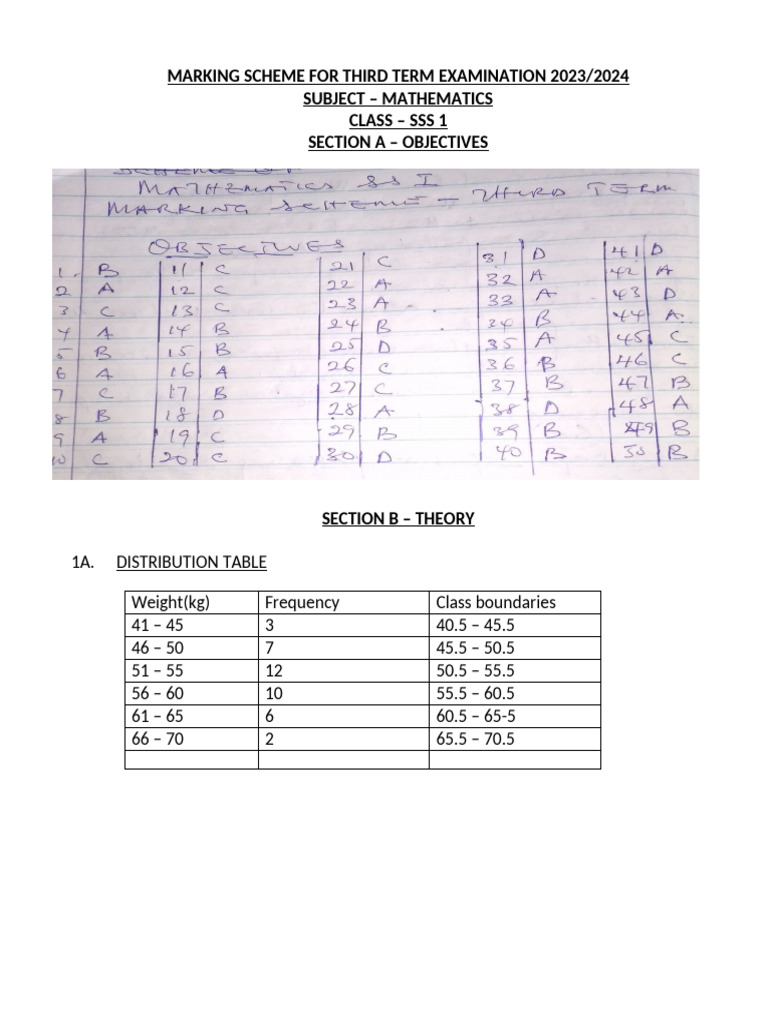 MARKING SCHEME FOR THIRD TERM EXAMINATION 2023/2024
SUBJECT – MATHEMATICS
CLASS – SSS 1
SECTION A – OBJECTIVES
MATHEMATICS SS I
MARKING SCHEME – THIRD TERM
OBJECTIVES
1. B 11 C 21 C 31 D 41 D
2 A 12 C 22 A 32 A 42 A
3 C 13 C 23 A 33 A 43 D
4 A 14 B 24 B 34 B 44 A.
5 B 15 B 25 D 35 A 45 C
6 A 16 A 26 C 36 B 46 C
7 C 17 B 27 C 37 B 47 B
8 B 18 D 28 A 38 D 48 A
9 A 19 C 29 B 39 B 49 B
10 C 20 C 30 D 40 B 50 B
SECTION B – THEORY
1A. DISTRIBUTION TABLE
Weight(kg) Frequency Class boundaries
41 – 45 3 40.5 – 45.5
46 – 50 7 45.5 – 50.5
51 – 55 12 50.5 – 55.5
56 – 60 10 55.5 – 60.5
61 – 65 6 60.5 – 65-5
66 – 70 2 65.5 – 70.5